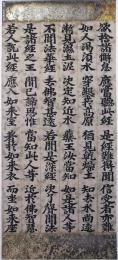 欲捨諸懈怠應當聽此經是經難得聞信受者亦難
如人渴須水穿鑿於高原猶見乾燥土知去水尚遠
漸見濕土泥決定知近水藥王汝當知如是諸人等
不聞法華經去佛智甚遠若聞是深經決了聲聞法
是諸經之王聞已諦思惟當知此人等近於佛智慧
若人說此經應入如來室著於如來衣而坐如來座